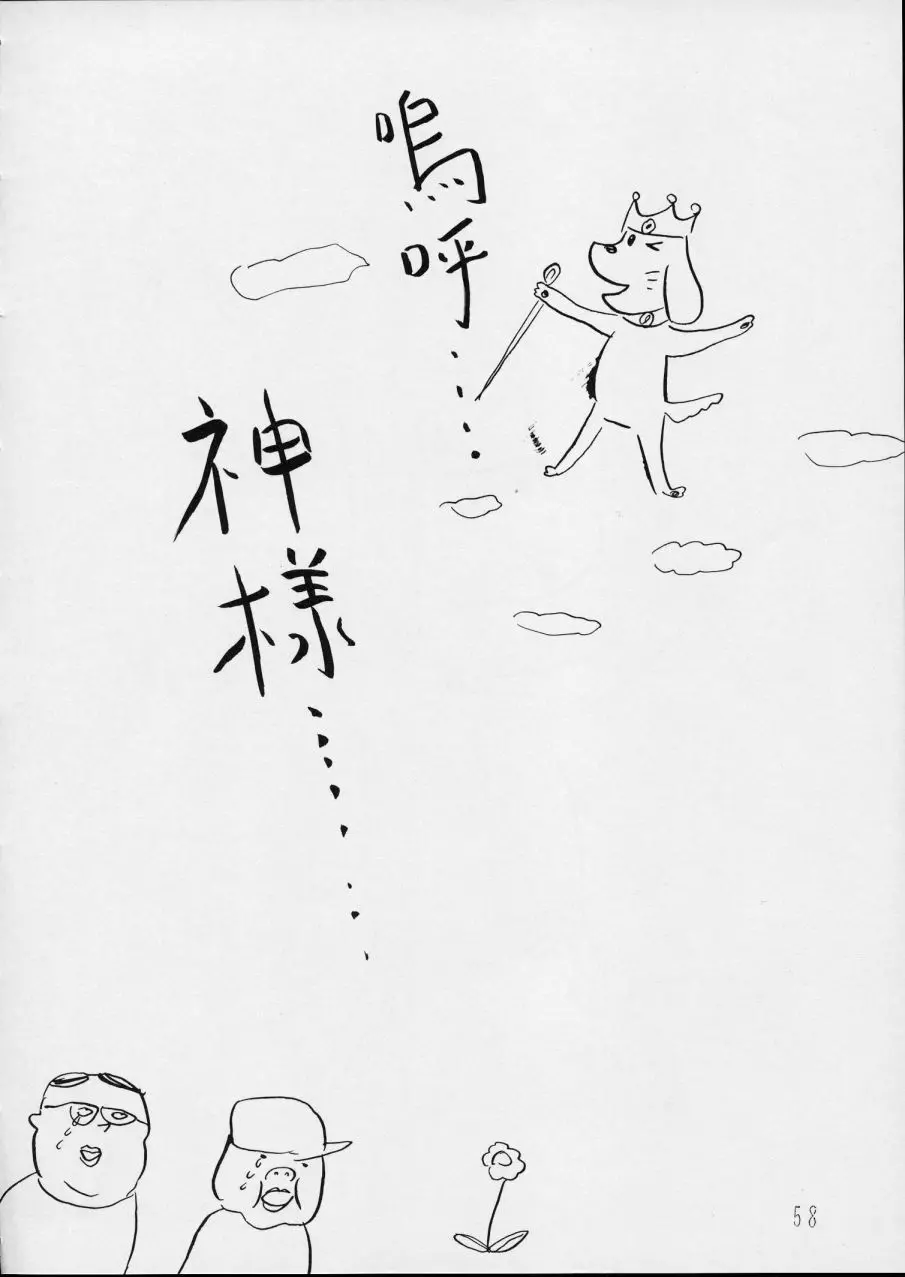 嗚呼……
神様………
58